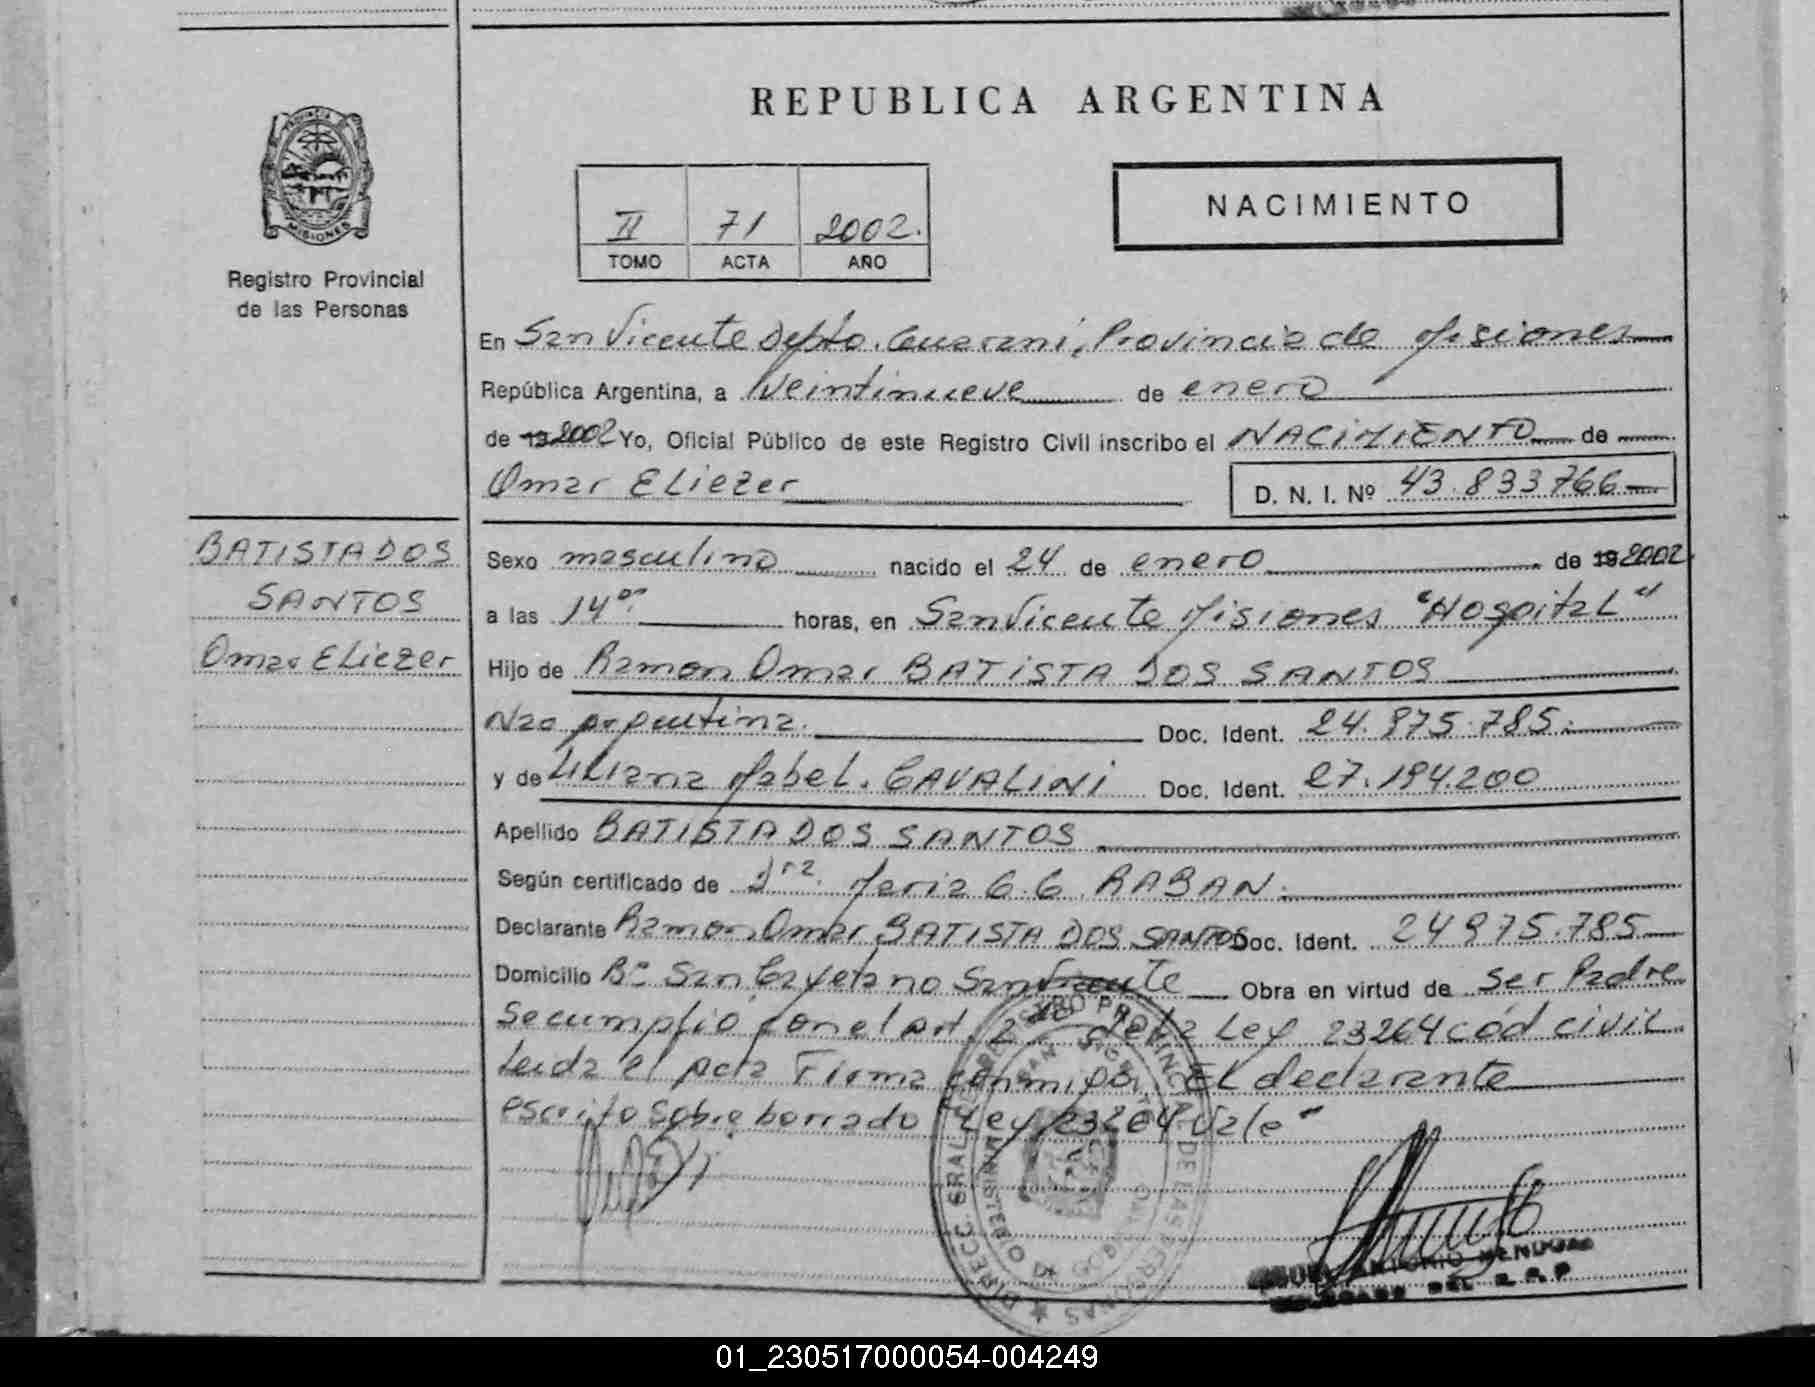 REPUBLICA ARGENTINA
NACIMIENTO
II 71 2002.
TOMO ACTA AÑO
PROVINCIA DE
MISIONES
Registro Provincial
de las Personas
En San Vicente Depto. Guarani, Provincia de Misiones
República Argentina, a Veintinueve de enero
de 19 2002 Yo, Oficial Público de este Registro Civil inscribo el NACIMIENTO de
Omar Eliezer D. N. I. Nº 43.833766
BATISTA DOS
SANTOS
Omar Eliezer
Sexo masculino nacido el 24 de enero de 19 2002
a las 14 horas, en San Vicente Misiones "Hospital"
Hijo de Ramon Omar BATISTA DOS SANTOS
Nac argentina. Doc. Ident. 24.875.785.
y de Liliana Mabel. CAVALINI Doc. Ident. 27.194.200
Apellido BATISTA DOS SANTOS
Según certificado de Dra. Maria G.G. RABAN.
Declarante Ramon Omar BATISTA DOS SANTOS Doc. Ident. 24875.785
Domicilio Bº San Cayetano San Vicente Obra en virtud de ser Padre
Se cumplio con el Art. 2 de la Ley 23264 cód civil
Leida el acta Firma conmigo, El declarante
escrito sobre borrado "Ley 23264 Vale"
ANTONIO
DEL R.P.P
01_230517000054-004249